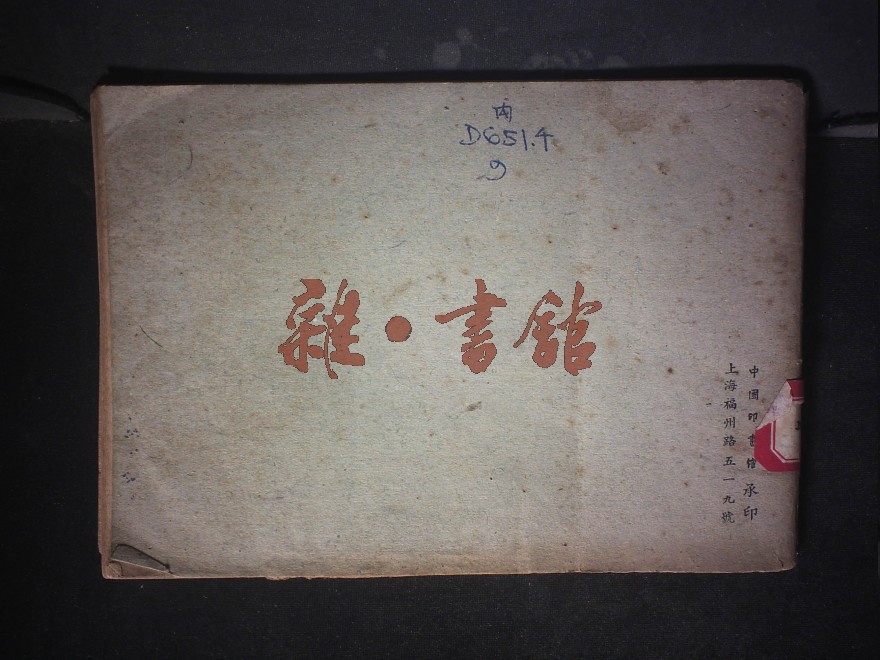 内
D651.4
9
雜·書館
中國印書館承印
上海福州路五一九號